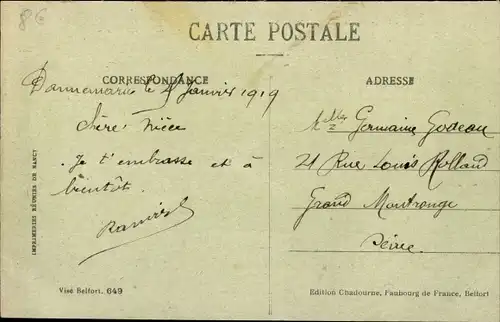 86
CARTE POSTALE
CORRESPONDANCE
ADRESSE
Dannemarie le Janvier 1919
Chère Nièce
Je t'embrasse et à
bientôt.
Mlle Germaine Godeau
21 Rue Louis Rolland
Grand Montrouge
Seine
IMPRIMERIES RÉUNIES DE NANCY
Visé Belfort. 649
Edition Chadourne, Faubourg de France, Belfort